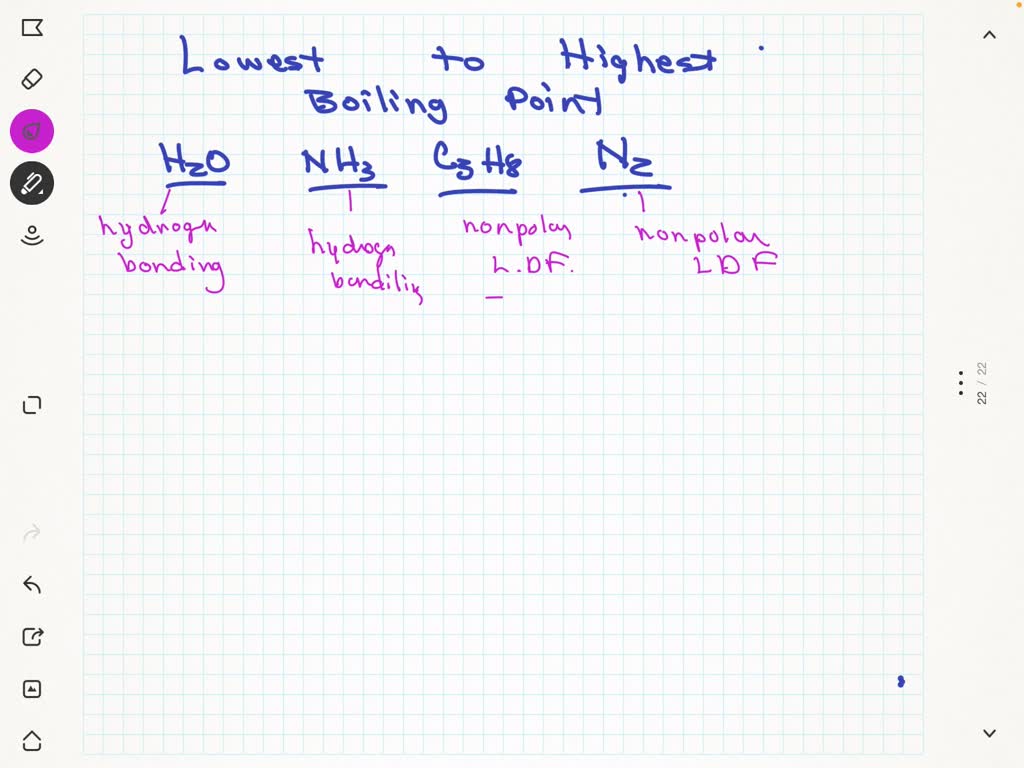 Lowest to Highest
Boiling Point
H2O NH3 C3H8 N2
hydrogn
bonding
hydrogn
bondiling
nonpolar
L.DF.
nonpolar
LDF
22 / 22